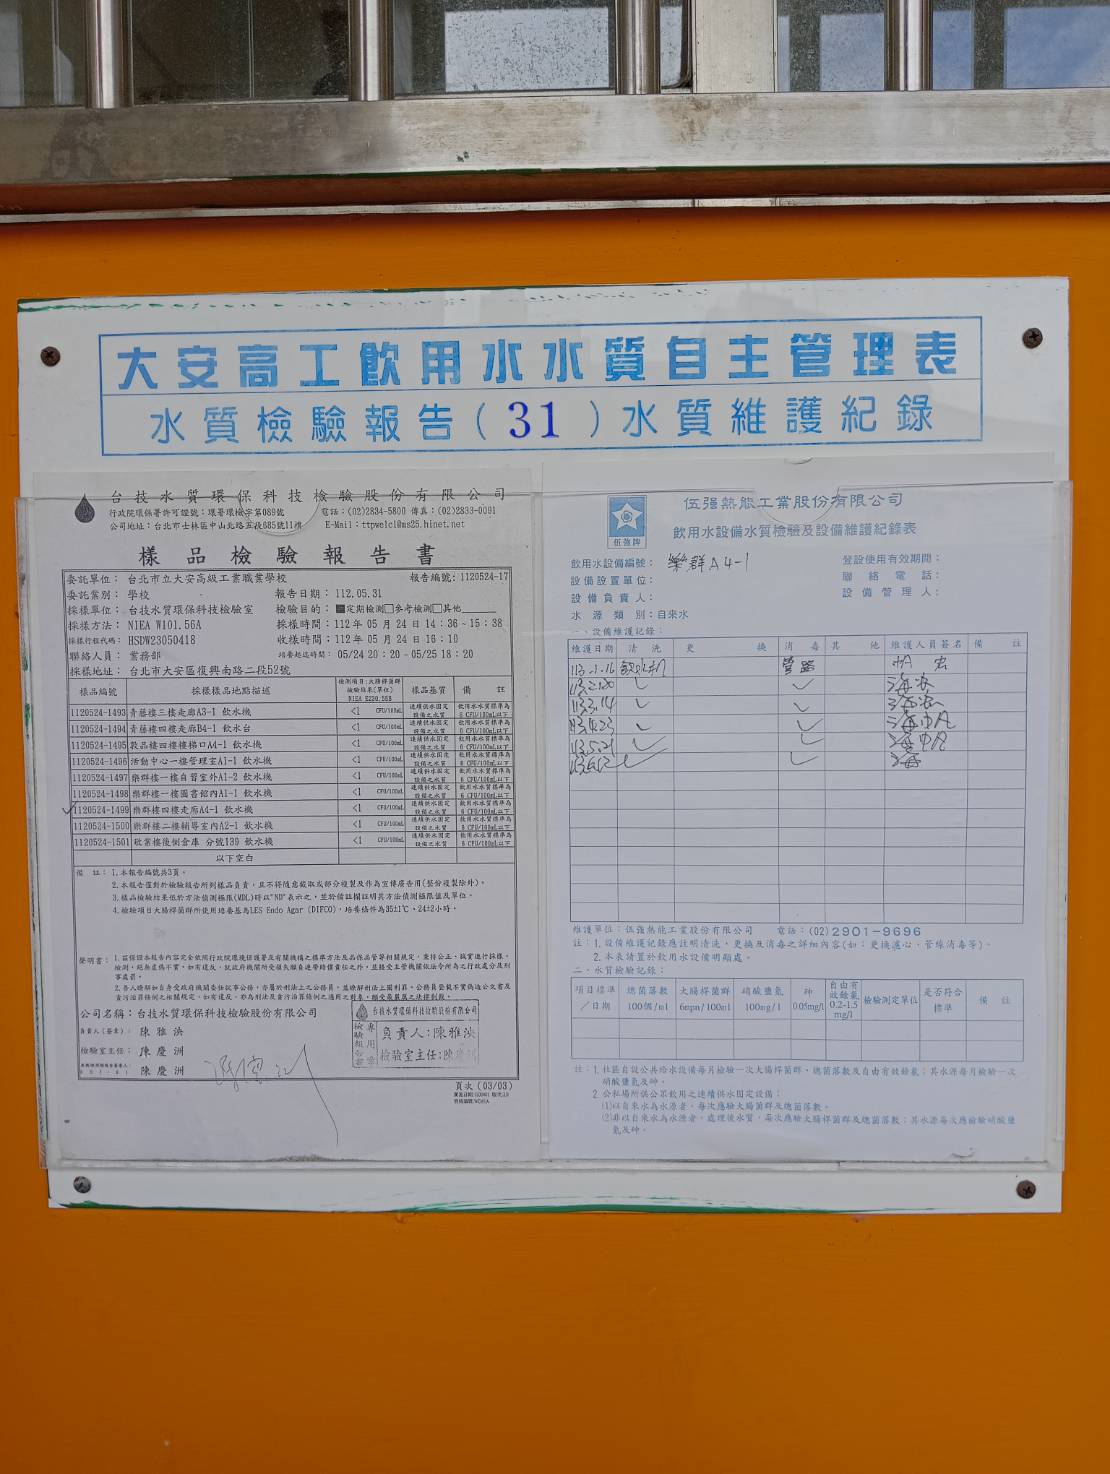 大安高工飲用水水質自主管理表
水質檢驗報告(31)水質維護紀錄
台技水質環保科技檢驗股份有限公司
行政院環保署許可證號：環署環檢字第089號 電話：(02)2834-5800 傳真：(02)2833-0091
公司地址：台北市士林區中山北路五段685號11樓 E-Mail：ttpwelcl@ms25.hinet.net
樣品檢驗報告書
委託單位：台北市立大安高級工業職業學校 報告編號：1120524-17
委託業別：學校 報告日期：112.05.31
採樣單位：台技水質環保科技檢驗室 檢驗目的：■定期檢測□參考檢測□其他
採樣方法：NIEA W101.56A 採樣時間：112 年 05 月 24 日 14：36 ~ 15：38
採樣行程代碼：HSDW23050418 收樣時間：112 年 05 月 24 日 16：10
聯絡人員：業務部 培養起迄時間：05/24 20：20 - 05/25 18：20
採樣地址：台北市大安區復興南路二段52號
樣品編號 採樣樣品地點描述 檢測項目:大腸桿菌群 檢驗結果(單位) NIEA E230.55B 樣品基質 備註
1120524-1493 青藤樓三樓走廊A3-1 飲水機 <1 CFU/100mL 連續供水固定設備之水質 飲用水水質標準為 6 CFU/100mL以下
1120524-1494 青藤樓四樓走廊B4-1 飲水台 <1 CFU/100mL 連續供水固定設備之水質 飲用水水質標準為 6 CFU/100mL以下
1120524-1495 敦品樓四樓樓梯口A4-1 飲水機 <1 CFU/100mL 連續供水固定設備之水質 飲用水水質標準為 6 CFU/100mL以下
1120524-1496 活動中心一樓管理室A1-1 飲水機 <1 CFU/100mL 連續供水固定設備之水質 飲用水水質標準為 6 CFU/100mL以下
1120524-1497 樂群樓一樓自習室外A1-2 飲水機 <1 CFU/100mL 連續供水固定設備之水質 飲用水水質標準為 6 CFU/100mL以下
1120524-1498 樂群樓一樓圖書館內A1-1 飲水機 <1 CFU/100mL 連續供水固定設備之水質 飲用水水質標準為 6 CFU/100mL以下
1120524-1499 樂群樓四樓走廊A4-1 飲水機 <1 CFU/100mL 連續供水固定設備之水質 飲用水水質標準為 6 CFU/100mL以下
1120524-1500 樂群樓二樓輔導室內A2-1 飲水機 <1 CFU/100mL 連續供水固定設備之水質 飲用水水質標準為 6 CFU/100mL以下
1120524-1501 敬業樓後側倉庫 分號139 飲水機 <1 CFU/100mL 連續供水固定設備之水質 飲用水水質標準為 6 CFU/100mL以下
以下空白
備 註：1.本報告編號共3頁。
2.本報告僅對於檢驗報告所列樣品負責，且不得隨意截取或部分複製及作為宣傳廣告用(整份複製除外)。
3.樣品檢驗結果低於方法偵測極限(MDL)時以"ND"表示之，並於備註欄註明其方法偵測極限值及單位。
4.檢驗項目大腸桿菌群所使用培養基為LES Endo Agar (DIFCO)，培養條件為35±1℃、24±2小時。
聲明書：1.茲保證本報告內容完全依照行政院環境保護署及有關機構之標準方法及品保品管等相關規定，秉持公正、誠實進行採樣、
檢測。絕無虛偽不實，如有違反，就政府機關所受損失願負連帶賠償責任之外，並接受主管機關依法令所為之行政處分及刑
事處罰。
2.吾人瞭解如自身受政府機關委任從事公務，亦屬於刑法上之公務員，並瞭解刑法上圖利罪、公務員登載不實偽造公文書及
貪污治罪條例之相關規定，如有違反，亦為刑法及貪污治罪條例之適用之對象，願受最嚴厲之法律制裁。
公司名稱：台技水質環保科技檢驗股份有限公司
負責人(簽章)：陳雅泱
檢驗室主任：陳慶洲
陳慶洲
台技水質環保科技檢驗股份有限公司
檢驗報告 專用章
負責人：陳雅泱
檢驗室主任：陳慶洲
頁次 (03/03)
伍強牌
伍强熱能工業股份有限公司
飲用水設備水質檢驗及設備維護紀錄表
飲用水設備編號：樂群A4-1 登設使用有效期間：
設備設置單位： 聯絡電話：
設備負責人： 設備管理人：
水源類別：自來水
一、設備維護記錄：
維護日期 清洗 更換 消毒 其他 維護人員簽名 備註
113.1.16 飲水機 管路
113.2.20 ✓ ✓
113.3.14 ✓ ✓
113.4.23 ✓ ✓
113.5.21 ✓ ✓
113.6.12 ✓ ✓
維護單位：伍強熱能工業股份有限公司 電話：(02)2901-9696
註：1.設備維護記錄應註明清洗、更換及消毒之詳細內容(如：更換濾心、管線消毒等)。
2.本表請置於飲用水設備明顯處。
二、水質檢驗記錄：
項目標準／日期 總菌落數 100個/ml 大腸桿菌群 6mpn/100ml 硝酸鹽氮 100mg/l 砷 0.05mg/l 自由有效餘氯 0.2-1.5 mg/l 檢驗測定單位 是否符合標準 備註
註：1.社區自設公共給水設備每月檢驗一次大腸桿菌群、總菌落數及自由有效餘氯；其水源每月檢驗一次
硝酸鹽氮及砷。
2.公私場所供公眾飲用之連續供水固定設備：
(1)以自來水為水源者，每次應驗大腸菌群及總菌落數。
(2)非以自來水為水源者，處理後水質，每次應驗大腸桿菌群及總菌落數；其水源每次應檢驗硝酸鹽
氮及砷。